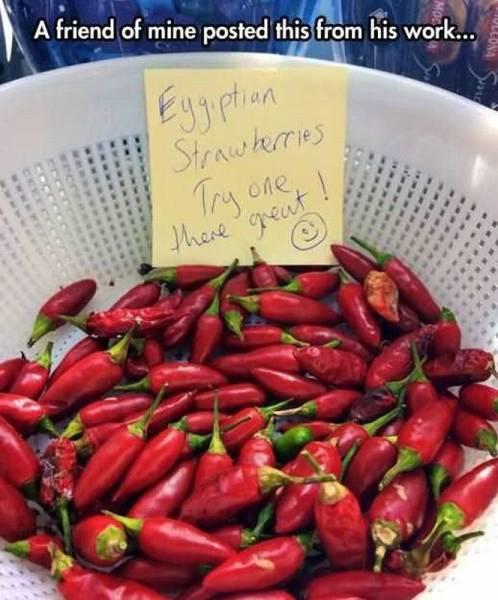 A friend of mine posted this from his work...
Eygiptian
Strawberries
Try one
there great !